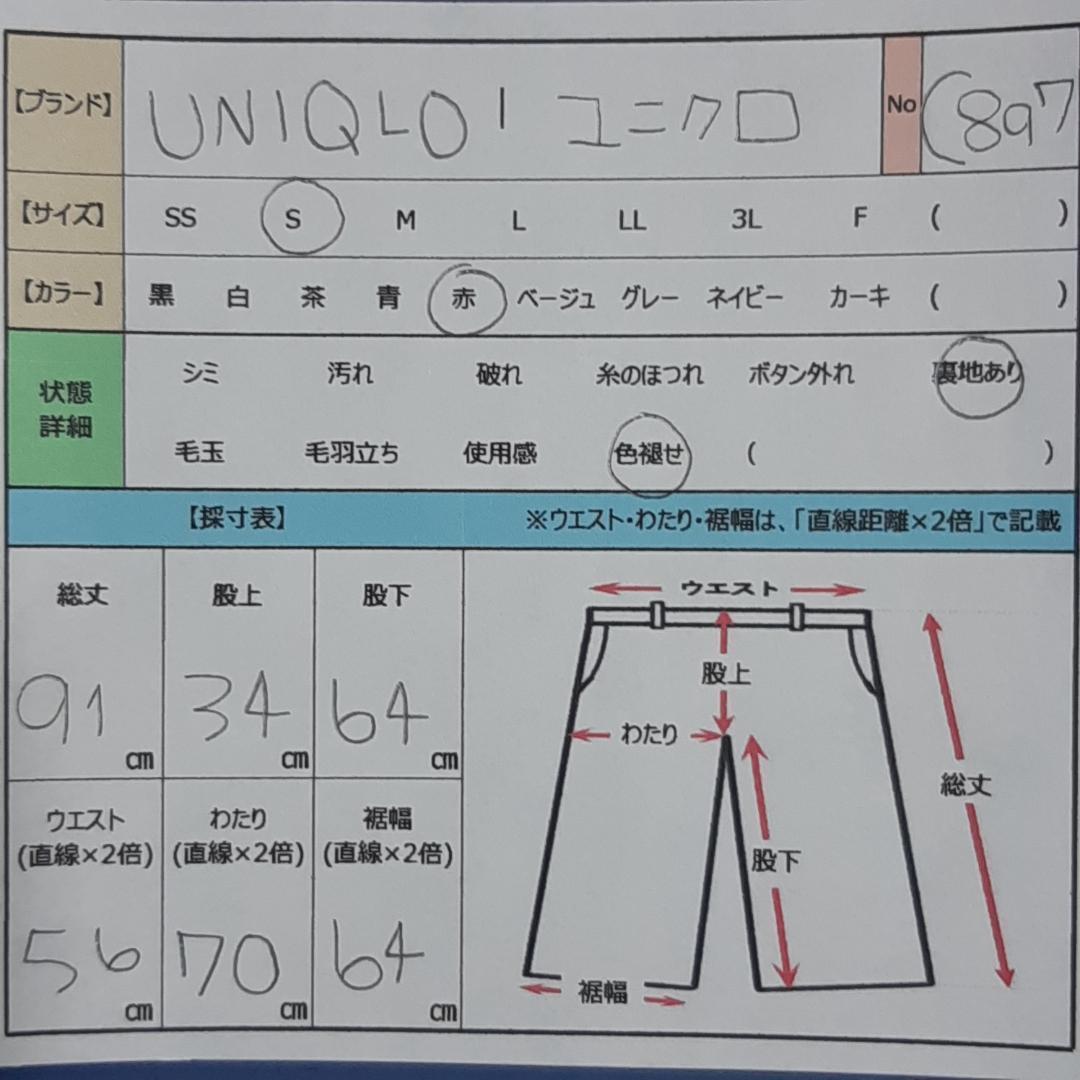 【ブランド】 UNIQLO ユニクロ No (897
【サイズ】 SS S M L LL 3L F ( )
【カラー】 黒 白 茶 青 赤 ベージュ グレー ネイビー カーキ ( )
状態詳細
シミ 汚れ 破れ 糸のほつれ ボタン外れ 裏地あり
毛玉 毛羽立ち 使用感 色褪せ ( )
【採寸表】 ※ウエスト・わたり・裾幅は、「直線距離×2倍」で記載
総丈 股上 股下
91cm 34cm 64cm
ウエスト わたり 裾幅
(直線×2倍) (直線×2倍) (直線×2倍)
56cm 70cm 64cm
ウエスト
股上
わたり
総丈
股下
裾幅